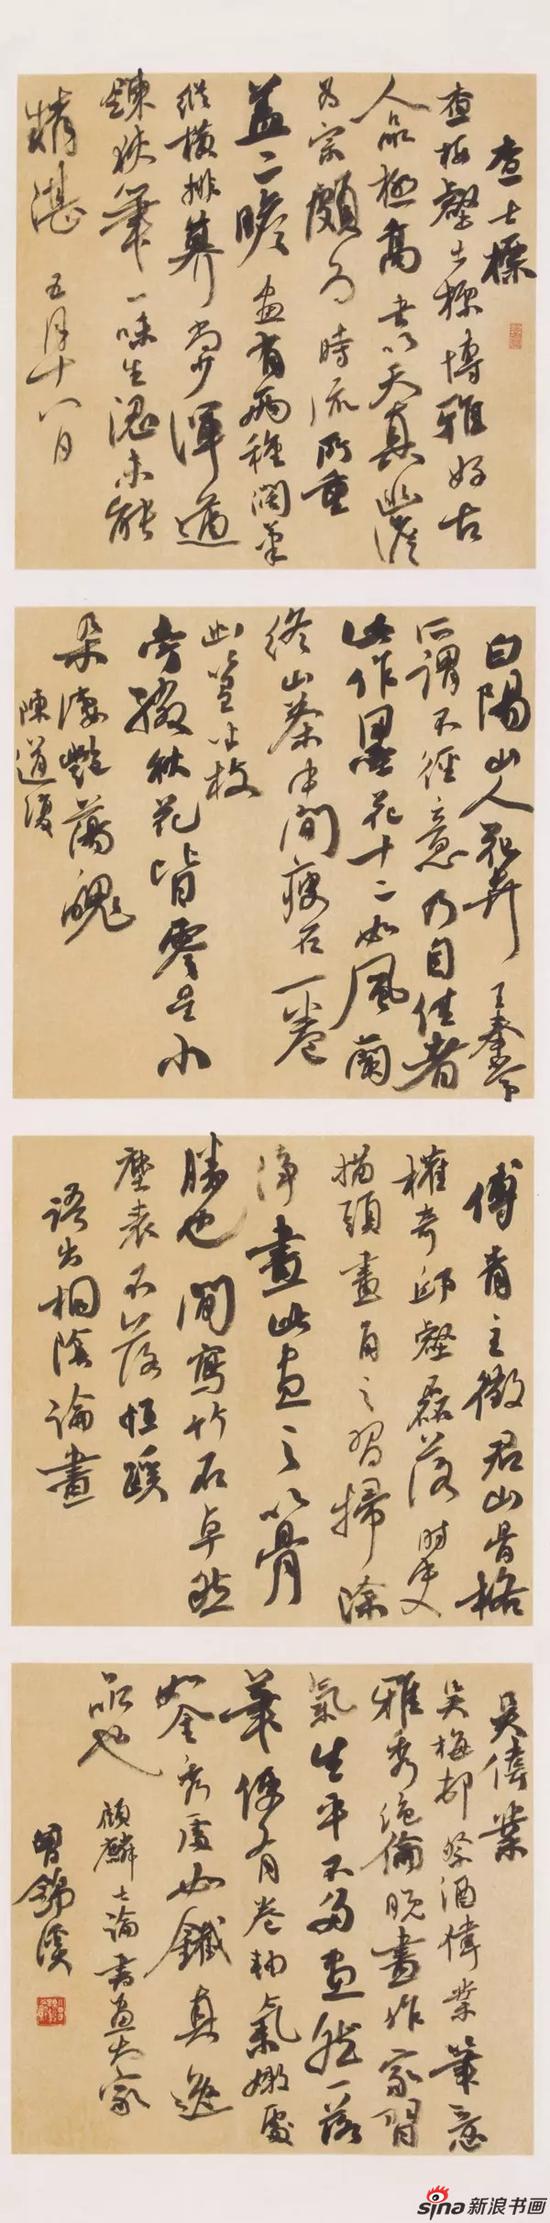 查士標
查梅壑士標博雅好古
人品極高書以天真幽澹
為宗頗為時流所重
蓋二瞻畫有兩種闊筆
縱橫排奡尚少渾遒
鍊狹筆一味生澀未能
精湛 五月十八日
白陽山人花卉 王秦
所謂不經意乃自佳者
此作墨花十二如風蘭
終山茶中間瘦石一卷
旁綴秋花皆零星小
朵淒豔蕩魄
陳道復
傅青主徵君山骨格
權奇邱壑磊落時史
描頭畫角之習掃除
淨盡此畫之以骨
勝也間寫竹石卓然
塵表不落恒蹊
語出桐陰論畫
吳偉業
吳梅邨祭酒偉業筆意
雅秀絕倫脫盡作家習
氣生平不多畫然一落
筆便有卷軸氣嫩處
如金秀處如鐵真逸
品也 顧麟士論書畫大家
曾錦溪
sina新浪书画